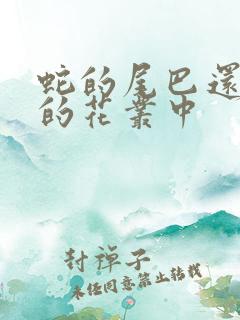 蛇的尾巴還
的花叢中
封禪子
未經同意禁止轉載